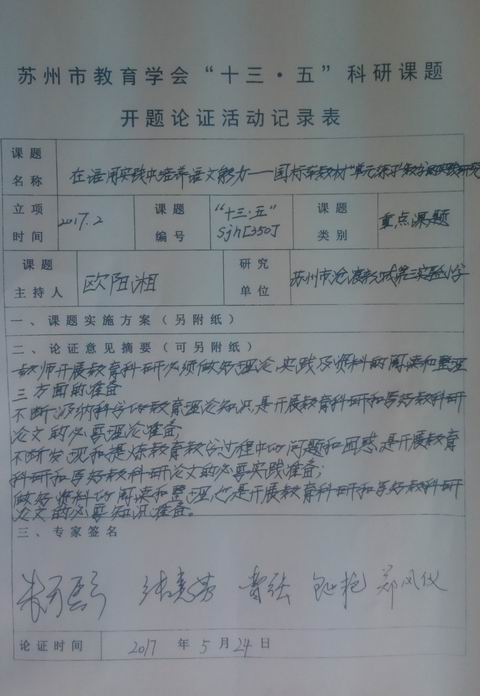 苏州市教育学会“十三·五”科研课题
开题论证活动记录表
课题
名称
在语用实践中培养语文能力——国标本教材“单元练习”教学的实践研究
立项
时间
2017.2
课题
编号
“十三·五”
Sjh[350]
课题
类别
重点课题
课题
主持人
欧阳湘
研究
单位
苏州市沧浪新城第三实验小学
一、课题实施方案(另附纸)
二、论证意见摘要(可另附纸)
教师开展教育科研必须做好理论、实践及资料的阅读和整理
三方面的准备
不断吸纳科学的教育理论知识,是开展教育科研和写好教科研
论文的必要理论准备;
不断发现和提炼教育教学过程中的问题和困惑是开展教育
科研和写好教科研论文的必要实践准备;
做好资料的阅读和整理,也是开展教育科研和写好教科研
论文的必要知识准备。
三、专家签名
郑凤仪
论证时间
2017 年 5 月 24 日